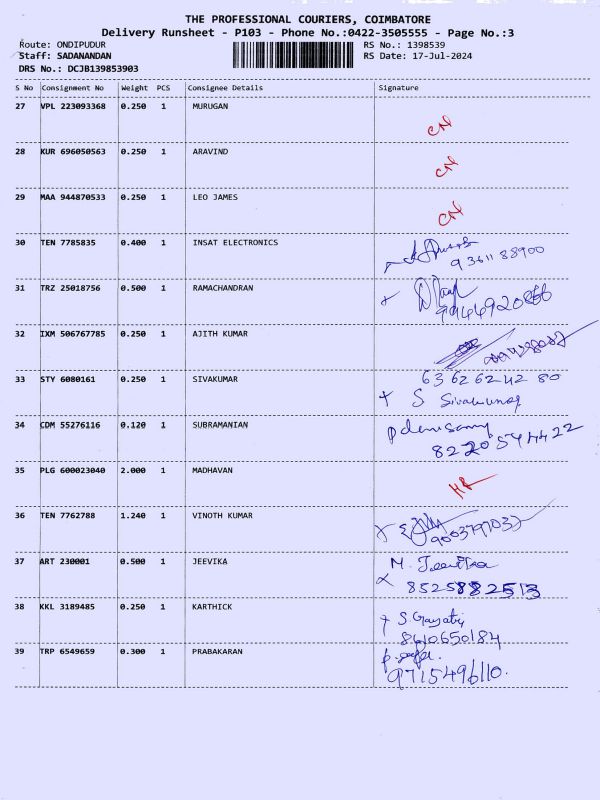 THE PROFESSIONAL COURIERS, COIMBATORE
Delivery Runsheet - P103 - Phone No.:0422-3505555 - Page No.:3
Route: ONDIPUDUR RS No.: 1398539
Staff: SADANANDAN RS Date: 17-Jul-2024
DRS No.: DCJB139853903
S No Consignment No Weight PCS Consignee Details Signature
27 VPL 223093368 0.250 1 MURUGAN
28 KUR 696050563 0.250 1 ARAVIND
29 MAA 944870533 0.250 1 LEO JAMES
30 TEN 7785835 0.400 1 INSAT ELECTRONICS
9361188900
31 TRZ 25018756 0.500 1 RAMACHANDRAN
32 IXM 506767785 0.250 1 AJITH KUMAR
33 STY 6080161 0.250 1 SIVAKUMAR
6362624280
S Sivakumar
34 CDM 55276116 0.120 1 SUBRAMANIAN
8220574422
35 PLG 600023040 2.000 1 MADHAVAN
36 TEN 7762788 1.240 1 VINOTH KUMAR
37 ART 230001 0.500 1 JEEVIKA
M. Jeevitha
8525882513
38 KKL 3189485 0.250 1 KARTHICK
S Gayatri
8610650184
39 TRP 6549659 0.300 1 PRABAKARAN
9715496110.